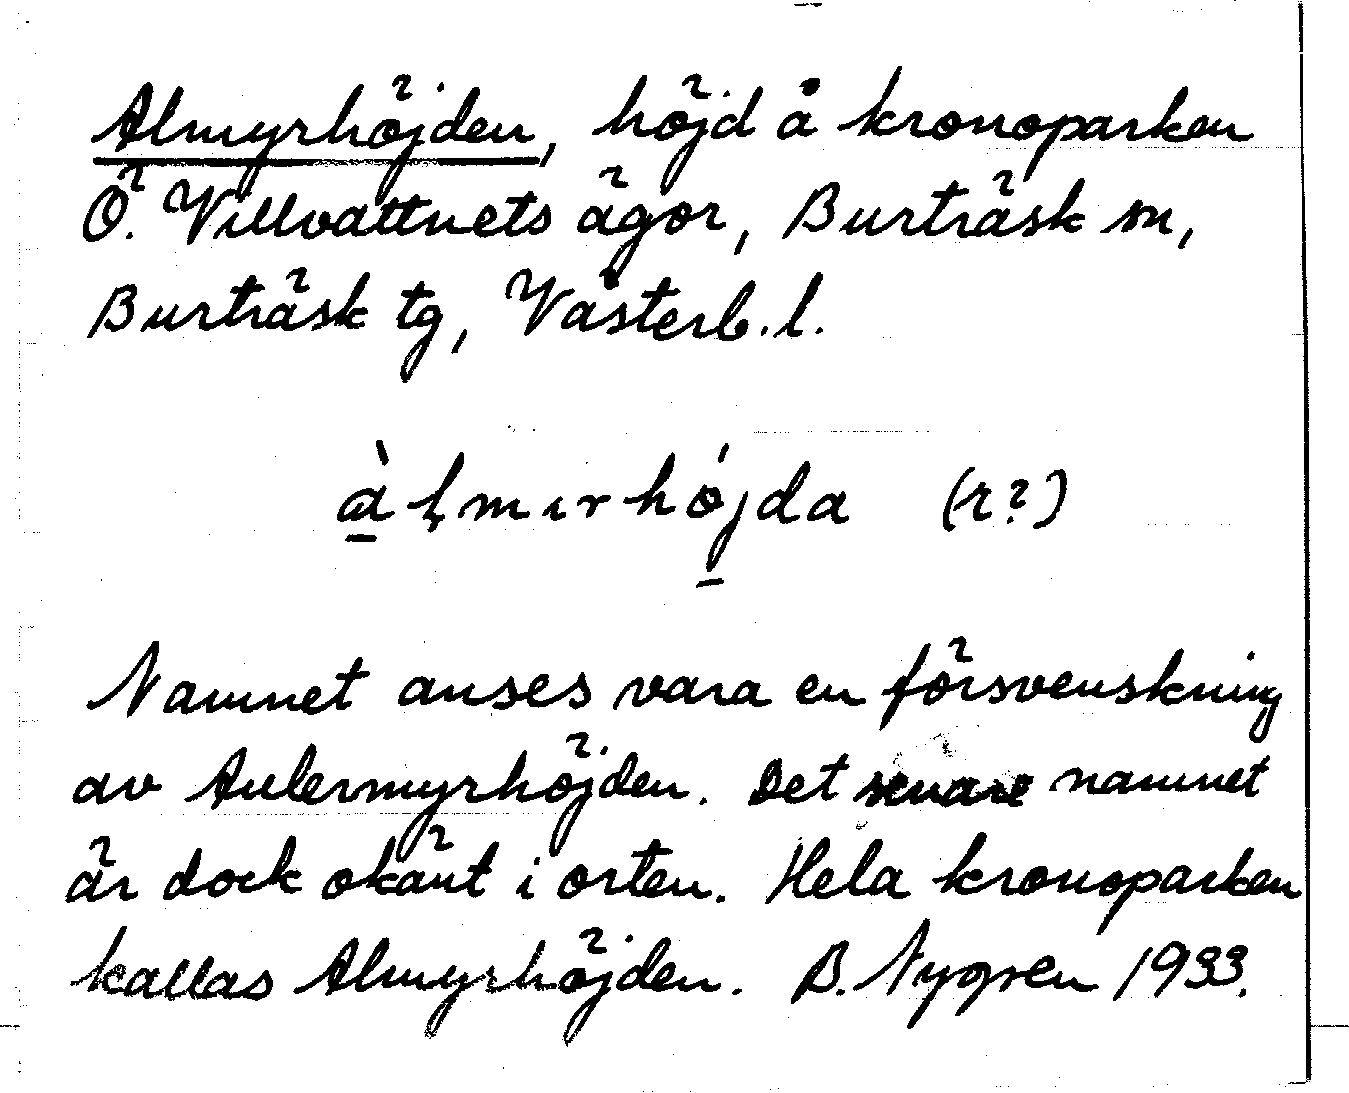 Almyrhöjden, höjd å kronoparken
Ö. Villvattnets ägor, Burträsk sn,
Burträsk tg, Västerb. l.
à̠ḷmɪrhǿj̠da (r?)
Namnet anses vara en försvenskning
av Aulermyrhöjden. Det senare namnet
är dock okänt i orten. Hela kronoparken
kallas Almyrhöjden. B. Nygren 1933.